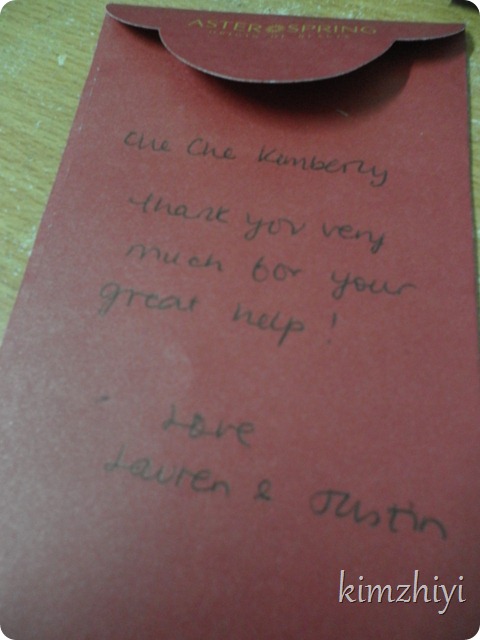 ASTER SPRING
Che Che Kimberly
thank you very
much for your
great help!
Love
Lauren & Justin
kimzhiyi